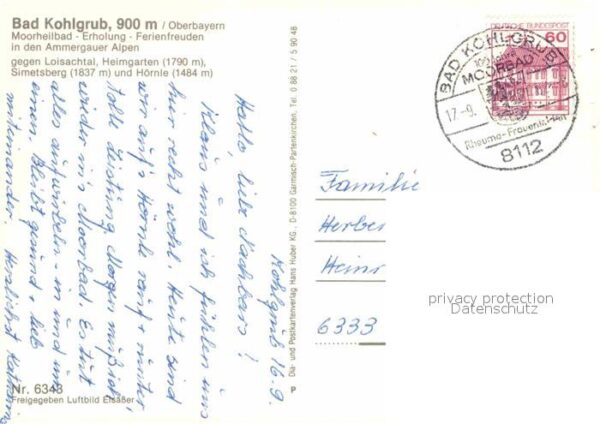 Bad Kohlgrub, 900 m / Oberbayern
Moorheilbad - Erholung - Ferienfreuden
in den Ammergauer Alpen
gegen Loisachtal, Heimgarten (1790 m),
Simetsberg (1837 m) und Hörnle (1484 m)
Kohlgrub 16.9.
Hallo, liebe Nachbarn!
Klaus und ich fühlen uns
hier recht wohl. Heute sind
wir auf's Hörnle rauf + runter
tolle Leistung. Morgen muß ich
wieder in's Moorbad. Es tut
alles aufwirbeln - in und um
einen. Bleibt gesund + lieb
miteinander. Herzlichst
Nr. 6343
Freigegeben Luftbild Elsäßer
Dia- und Postkartenverlag Hans Huber KG., D-8100 Garmisch-Partenkirchen, Tel. 0 88 21 / 5 90 48
P
DEUTSCHE BUNDESPOST
60
BAD KOHLGRUB
MOORBAD
17.-9.
Rheuma-Frauenleiden
8112
Familie
Herbe
Heinr
6333
privacy protection
Datenschutz